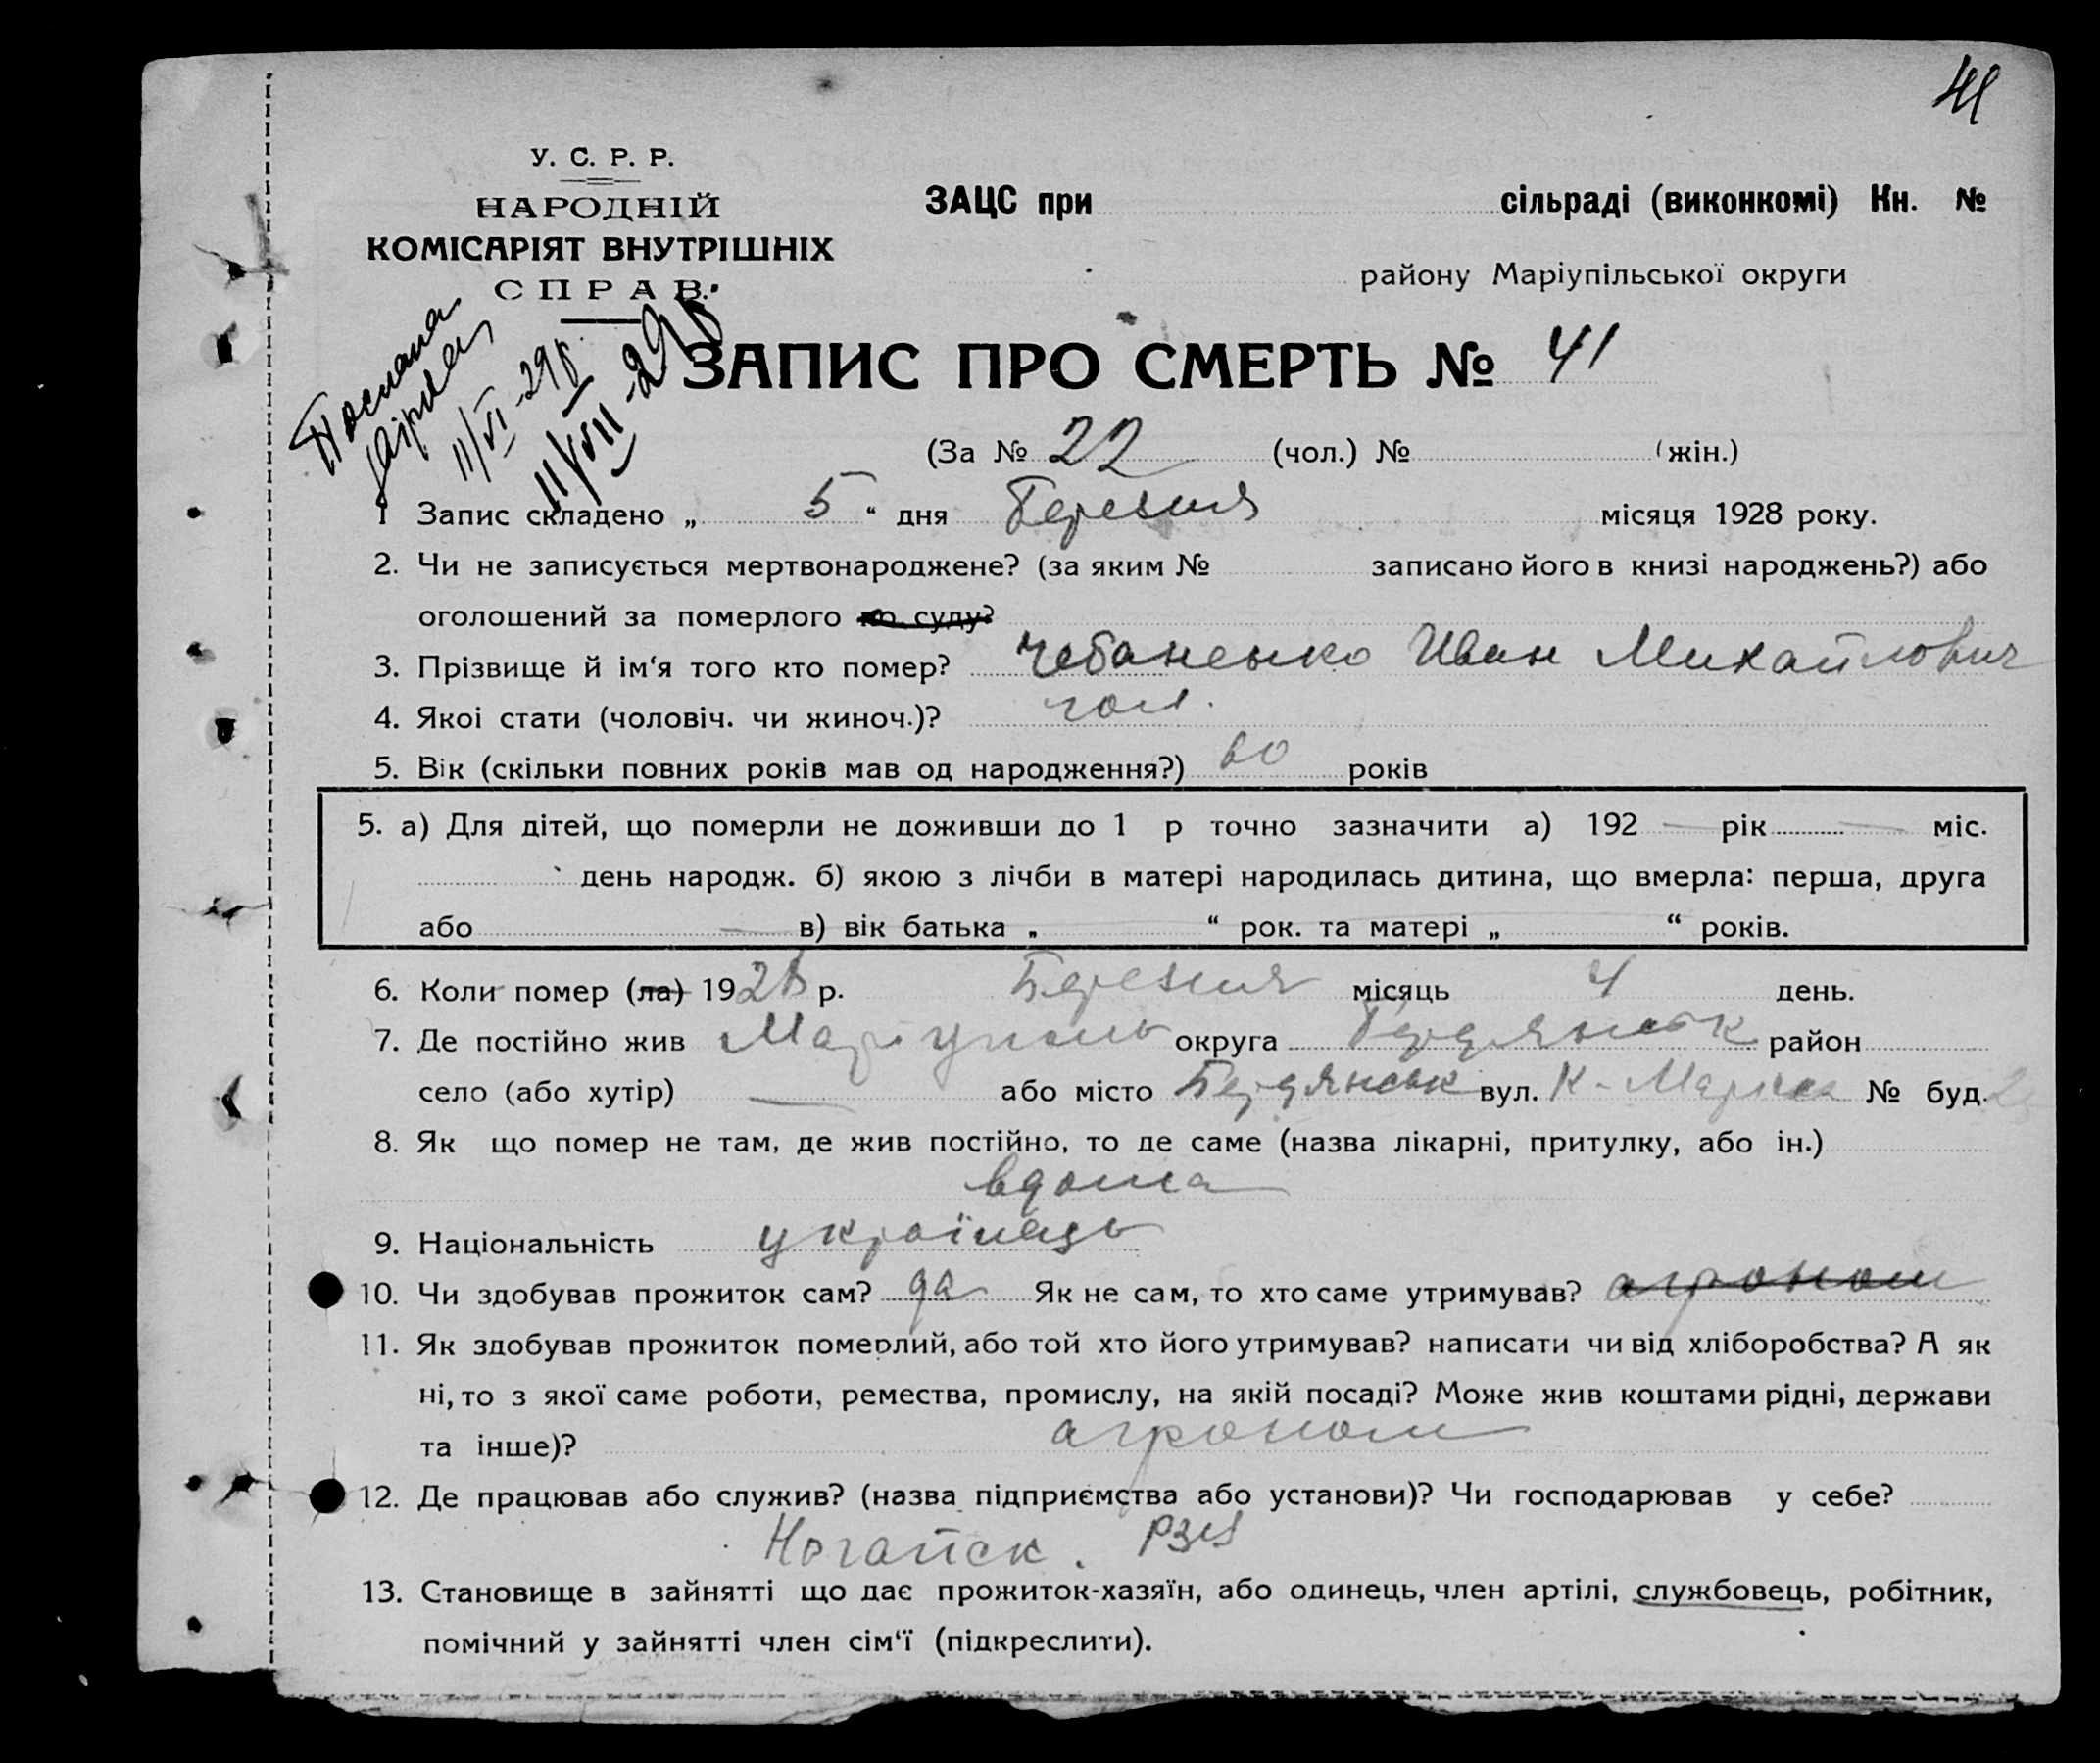 41
У. С. Р. Р.
НАРОДНІЙ
КОМІСАРІЯТ ВНУТРІШНІХ
СПРАВ.
ЗАЦС при сільраді (виконкомі) Кн. №
району Маріупільської округи
Послана
11/VI-29р.
11/VIII-29р
ЗАПИС ПРО СМЕРТЬ № 41
(За № 22 (чол.) № (жін.)
1 Запис складено „ 5 “ дня Березня місяця 1928 року.
2. Чи не записується мертвонароджене? (за яким № записано його в книзі народжень?) або
оголошений за померлого по суду?
3. Прізвище й ім‘я того кто помер? Чебаненко Иван Михайлович
4. Якоі стати (чоловіч. чи жиноч.)? чол.
5. Вік (скільки повних років мав од народження?) 60 років
5. а) Для дітей, що померли не доживши до 1 р точно зазначити а) 192 — рік — міс.
день народж. б) якою з лічби в матері народилась дитина, що вмерла: перша, друга
або — в) вік батька „ “ рок. та матері „ “ років.
6. Коли помер (ла) 1928 р. Березня місяць 4 день.
7. Де постійно жив Маріуполь округа Бердянськ район
село (або хутір) — або місто Бердянськ вул. К-Маркса № буд.
8. Як що помер не там, де жив постійно, то де саме (назва лікарні, притулку, або ін.)
вдома
9. Національність українець
10. Чи здобував прожиток сам? да Як не сам, то хто саме утримував? агроном
11. Як здобував прожиток померлий, або той хто його утримував? написати чи від хліборобства? А як
ні, то з якої саме роботи, ремества, промислу, на якій посаді? Може жив коштами рідні, держави
та інше)? агроном
12. Де працював або служив? (назва підприємства або установи)? Чи господарював у себе?
Ногайск.
13. Становище в зайнятті що дає прожиток-хазяїн, або одинець, член артілі, службовець, робітник,
помічний у зайнятті член сім‘ї (підкреслити).